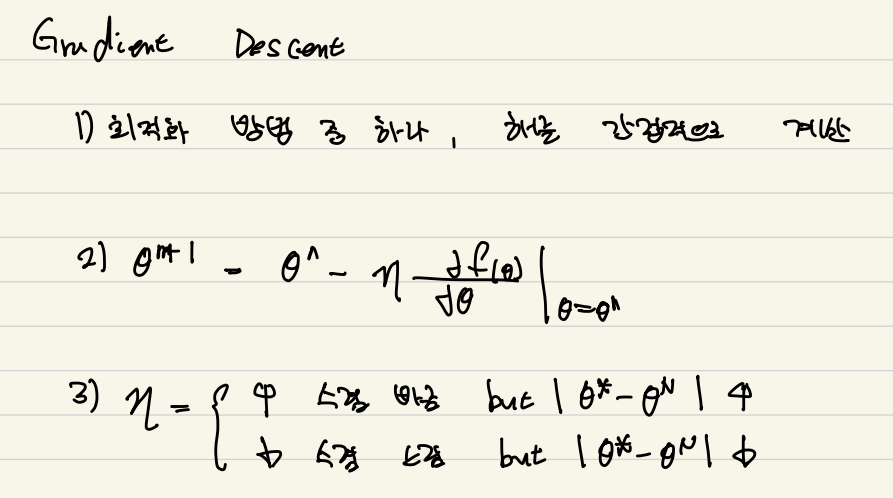 Gradient Descent
1) 최적화 방법 중 하나, 해를 간접적으로 계산
2) θⁿ⁺¹ = θⁿ - η df(θ)/dθ |θ=θⁿ
3) η = { ↑ 수렴 빠름 but | θ* - θᴺ | ↑
↓ 수렴 느림 but | θ* - θᴺ | ↓